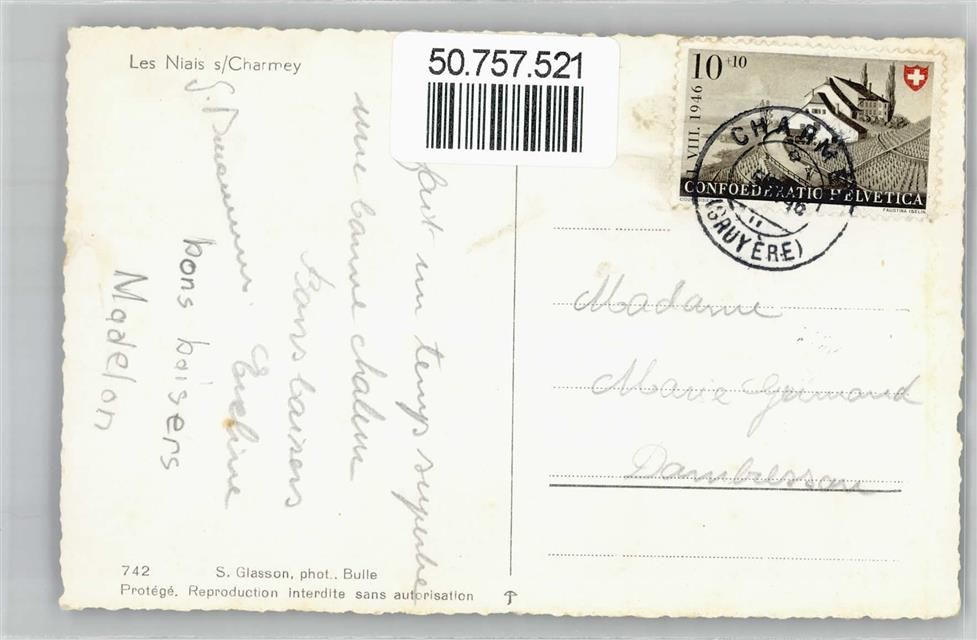 Les Niais s/Charmey
50.757.521
10+10
VIII. 1946
CONFOEDERATIO HELVETICA
FAUSTINA ISELIN
CHARMEY
(GRUYÈRE)
fait un temps superbe
une bonne chaleur
Bons baisers
Eveline
bons baisers
Madelon
Madame
Marie Grimand
Dombresson
742 S. Glasson, phot.. Bulle
Protégé. Reproduction interdite sans autorisation